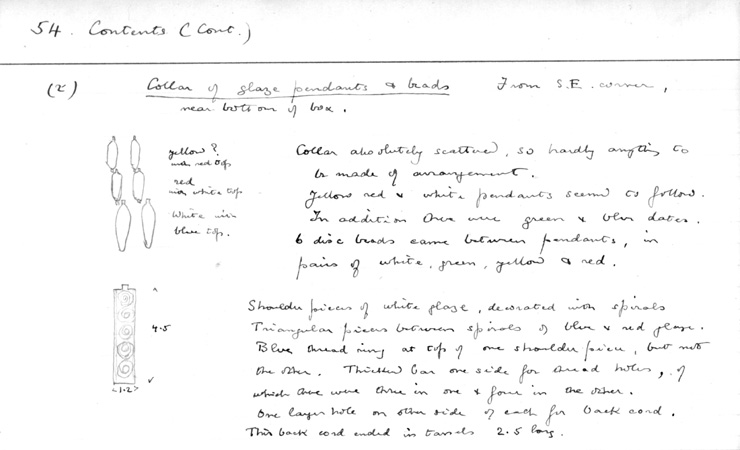 54. Contents (Cont.)
(x) Collar of glaze pendants & beads From S.E. corner,
near bottom of box.
yellow?
with red tops
red
with white tops
White with
blue tops.
Collar absolutely scattered, so hardly anything to
be made of arrangement.
Yellow red & white pendants seemed to follow.
In addition there were green & blue dates.
6 disc beads came between pendants, in
pairs of white, green, yellow & red.
Shoulder pieces of white glaze, decorated with spirals
Triangular pieces between spirals of blue & red glaze.
Blue thread ring at top of one shoulder piece, but not
the other. Thickened bar one side for thread holes, of
which there were three in one & four in the other.
One larger hole on other side of each for back cord.
This back cord ended in tassels 2.5 long.
4.5
1.2